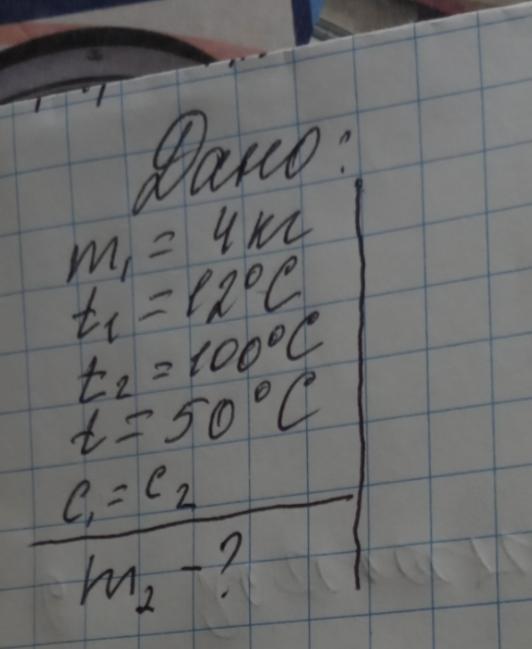 Дано:
m₁ = 4 кг
t₁ = 12°C
t₂ = 100°C
t = 50°C
c₁ = c₂
m₂ - ?